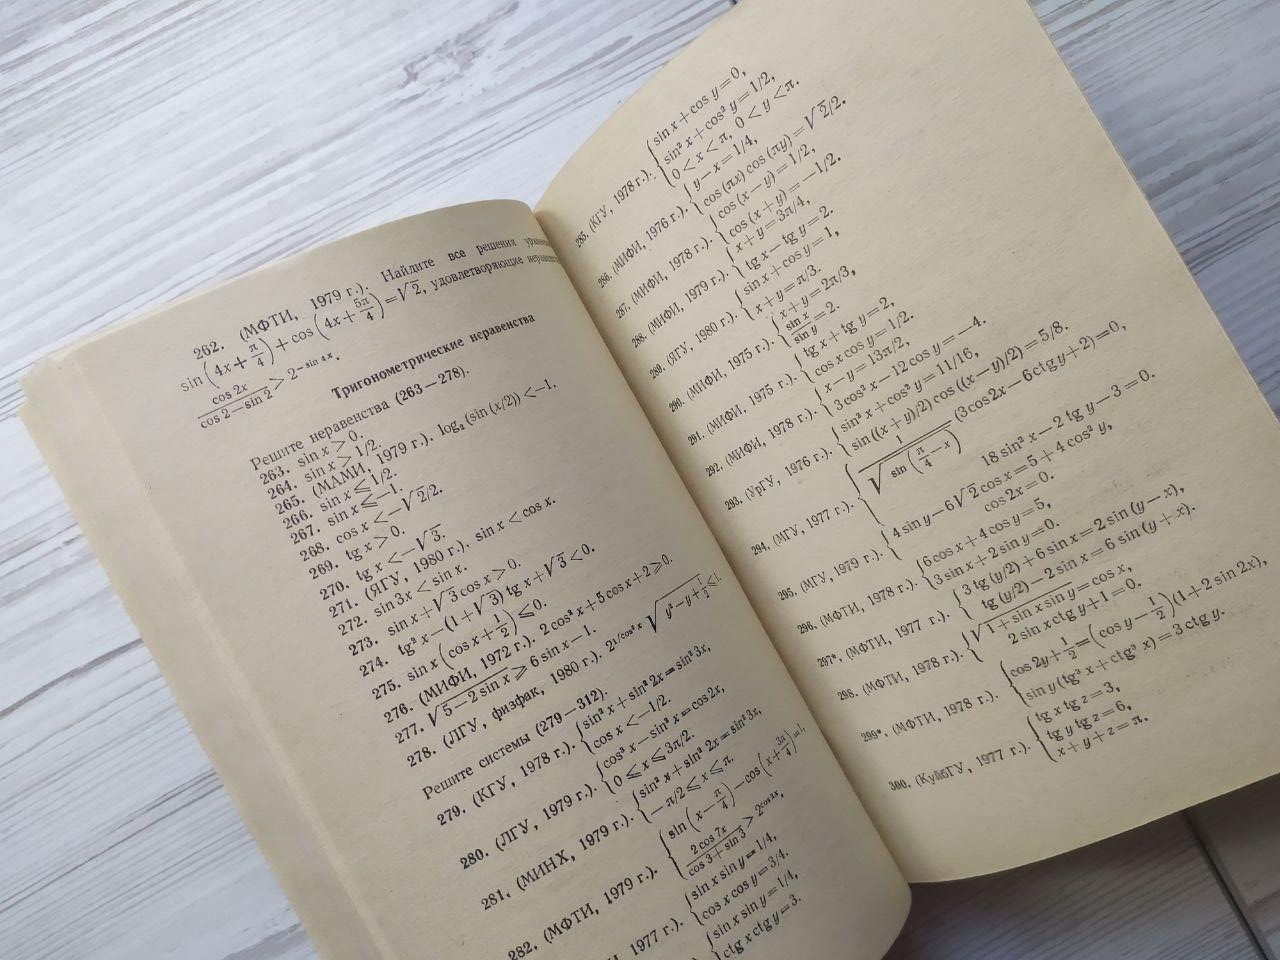 262. (МФТИ, 1979 г.). Найдите все решения
sin (4x + π/4) + cos (4x + 5π/4) = √2, удовлетворяющие
cos 2x / (cos 2 − sin 2) > 2^(−sin 4x).
Тригонометрические неравенства
Решите неравенства (263—278).
263. sin x > 0.
264. sin x > 1/2.
265. (МАМИ, 1979 г.). log₂ (sin (x/2)) < −1.
266. sin x ⩽ 1/2.
267. sin x ⩽ −1.
268. cos x < −√2/2.
269. tg x > 0.
270. tg x < −√3.
271. (ЯГУ, 1980 г.). sin x < cos x.
272. sin 3x < sin x.
273. sin x + √3 cos x > 0.
274. tg² x − (1 + √3) tg x + √3 < 0.
275. sin x (cos x + 1/2) ⩽ 0.
276. (МИФИ, 1972 г.). 2 cos² x + 5 cos x + 2 ⩾ 0.
277. √(5 − 2 sin x) ⩾ 6 sin x − 1.
278. (ЛГУ, физфак, 1980 г.). 2^(1/cos² x) √(y² − y + 1/2) ⩽ 1.
Решите системы (279—312).
279. (КГУ, 1978 г.). { sin² x + sin² 2x = sin² 3x,
cos x < −1/2.
280. (ЛГУ, 1979 г.). { cos² x − sin² x = cos 2x,
0 ⩽ x ⩽ 3π/2.
281. (МИНХ, 1979 г.). { sin² x + sin² 2x = sin² 3x,
−π/2 ⩽ x ⩽ π.
282. (МФТИ, 1979 г.). { sin (x − π/4) − cos (x + 3π/4) = 1,
2 cos 7x / (cos 3 + sin 3) > 2^(cos 2x).
1977 г.). { sin x sin y = 1/4,
cos x cos y = 3/4.
{ sin x sin y = 1/4,
ctg x ctg y = 3.
285. (КГУ, 1978 г.). { sin x + cos y = 0,
sin² x + cos² y = 1/2,
0 < x < π, 0 < y < π.
286. (МИФИ, 1976 г.). { y − x = 1/4,
cos (πx) cos (πy) = √2/2.
287. (МИФИ, 1978 г.). { cos (x − y) = 1/2,
cos (x + y) = −1/2.
288. (МИФИ, 1979 г.). { x + y = 3π/4,
tg x − tg y = 2.
289. (ЯГУ, 1980 г.). { sin x + cos y = 1,
x + y = π/3.
290. (МИФИ, 1975 г.). { x + y = 2π/3,
sin x / sin y = 2.
291. (МИФИ, 1975 г.). { tg x + tg y = 2,
cos x cos y = 1/2.
292. (МИФИ, 1978 г.). { x − y = 13π/2,
3 cos² x − 12 cos y = −4.
293. (УрГУ, 1976 г.). { sin² x + cos² y = 11/16,
sin ((x + y)/2) cos ((x − y)/2) = 5/8.
294. (МГУ, 1977 г.). { 1/√(sin (π/4 − x)) (3 cos 2x − 6 ctg y + 2) = 0,
18 sin² x − 2 tg y − 3 = 0.
295. (МГУ, 1979 г.). { 4 sin y − 6√2 cos x = 5 + 4 cos² y,
cos 2x = 0.
296. (МФТИ, 1978 г.). { 6 cos x + 4 cos y = 5,
3 sin x + 2 sin y = 0.
297*. (МФТИ, 1977 г.). { 3 tg (y/2) + 6 sin x = 2 sin (y − x),
tg (y/2) − 2 sin x = 6 sin (y + x).
298. (МФТИ, 1978 г.). { √(1 + sin x sin y) = cos x,
2 sin x ctg y + 1 = 0.
299*. (МФТИ, 1978 г.). { cos 2y + 1/2 = (cos y − 1/2) (1 + 2 sin 2x),
sin y (tg³ x + ctg³ x) = 3 ctg y.
300. (КуйбГУ, 1977 г.). { tg x tg z = 3,
tg y tg z = 6,
x + y + z = π.